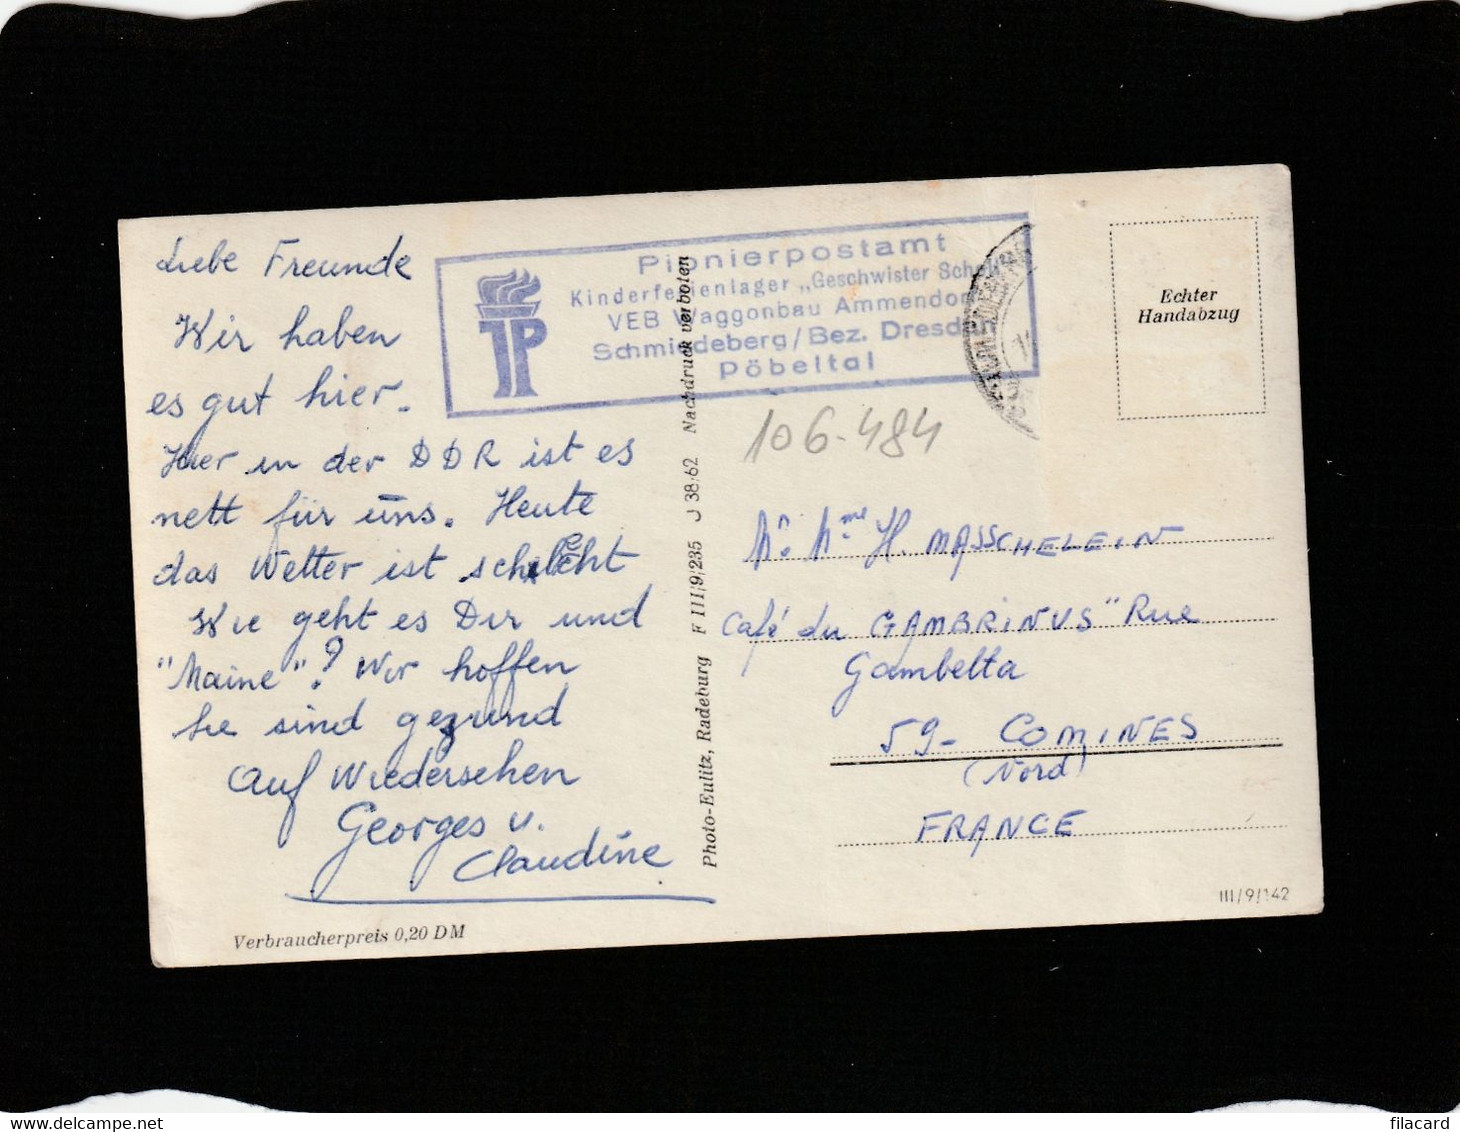 Liebe Freunde
Wir haben
es gut hier.
Hier in der DDR ist es
nett für uns. Heute
das Wetter ist schlecht
Wie geht es Dir und
"Maine"? Wir hoffen
Sie sind gezund
Auf Wiedersehen
Georges u.
Claudine
Verbraucherpreis 0,20 DM
Pionierpostamt
Kinderferienlager „Geschwister Scholl"
VEB Waggonbau Ammendorf
Schmiedeberg/Bez. Dresden
Pöbeltal
TP
Photo-Eulitz, Radeburg F III/9/235 J 38/62 Nachdruck verboten
Echter
Handabzug
106-484
Mr. Mme H. MASSCHELEIN
Café du GAMBRINUS" Rue
Gambetta
59- COMINES
(Nord)
FRANCE
III/9/142
filacard